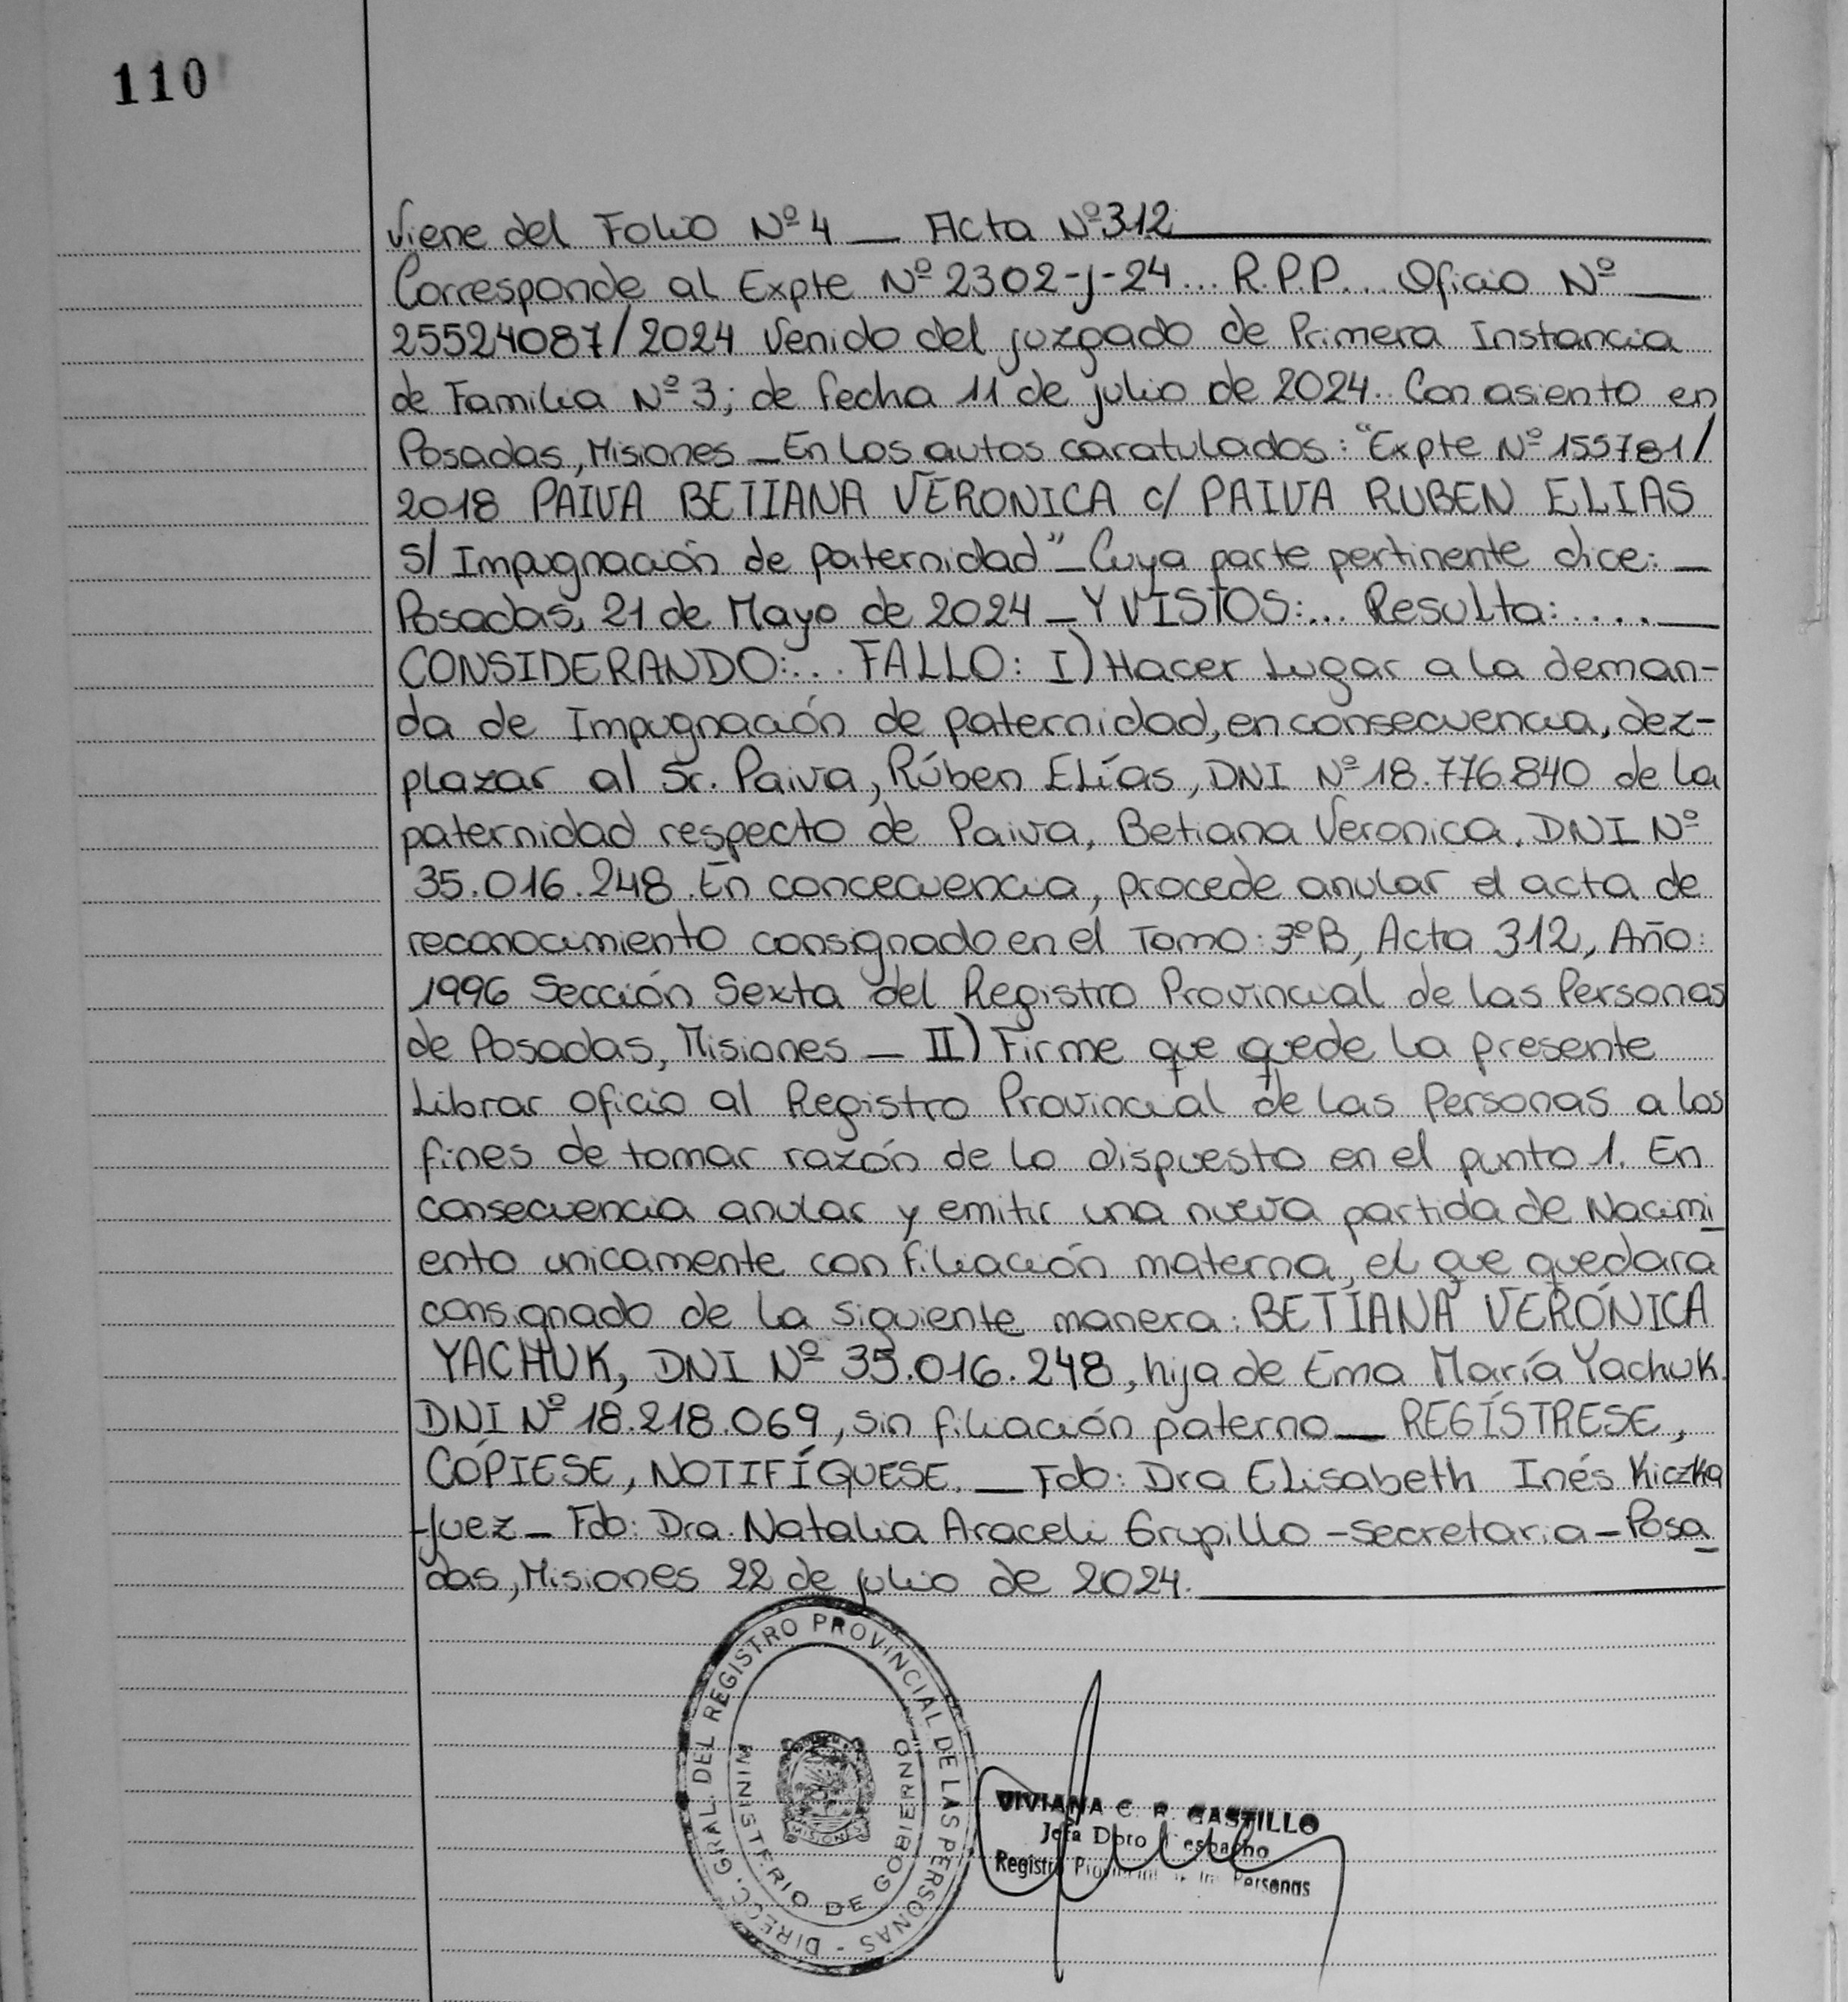 110
Viene del Folio Nº 4 _ Acta Nº 312
Corresponde al Expte Nº 2302-J-24... R.P.P... Oficio Nº _
25524087/2024 Venido del juzgado de Primera Instancia
de Familia Nº 3; de fecha 11 de julio de 2024.. Con asiento en
Posadas, Misiones _ En Los autos caratulados: "Expte Nº 155781/
2018 PAIVA BETIANA VERONICA c/ PAIVA RUBEN ELIAS
s/ Impugnación de paternidad" _ Cuya parte pertinente dice: _
Posadas, 21 de Mayo de 2024 _ Y VISTOS:... Resulta:.... _
CONSIDERANDO:... FALLO: I) Hacer Lugar a la deman-
da de Impugnación de paternidad, en consecuencia, dez-
plazar al Sr. Paiva, Rúben Elías, DNI Nº 18.776.840 de la
paternidad respecto de Paiva, Betiana Veronica. DNI Nº
35.016.248. En concecuencia, procede anular el acta de
reconocimiento consignado en el Tomo: 3º B, Acta 312, Año:
1996 Sección Sexta del Registro Provincial de las Personas
de Posadas, Misiones _ II) Firme que quede la presente
Librar oficio al Registro Provincial de las Personas a los
fines de tomar razón de lo dispuesto en el punto 1. En
consecuencia anular y emitir una nueva partida de Nacimi
ento unicamente con filiación materna, el que quedara
consignado de la siguiente manera: BETIANA VERÓNICA
YACHUK, DNI Nº 35.016.248, hija de Ema María Yachuk.
DNI Nº 18.218.069, sin filiación paterno _ REGÍSTRESE,
CÓPIESE, NOTIFÍQUESE. _ Fdo: Dra Elisabeth Inés Kiczka
-Juez _ Fdo: Dra. Natalia Araceli Grupillo - Secretaria - Posa
das, Misiones 22 de julio de 2024.
DIRECC. GRAL. DEL REGISTRO PROVINCIAL DE LAS PERSONAS -
MINISTERIO DE GOBIERNO
MISIONES
VIVIANA C. R. CASTILLO
Jefa Dpto Despacho
Registro Provincial de las Personas